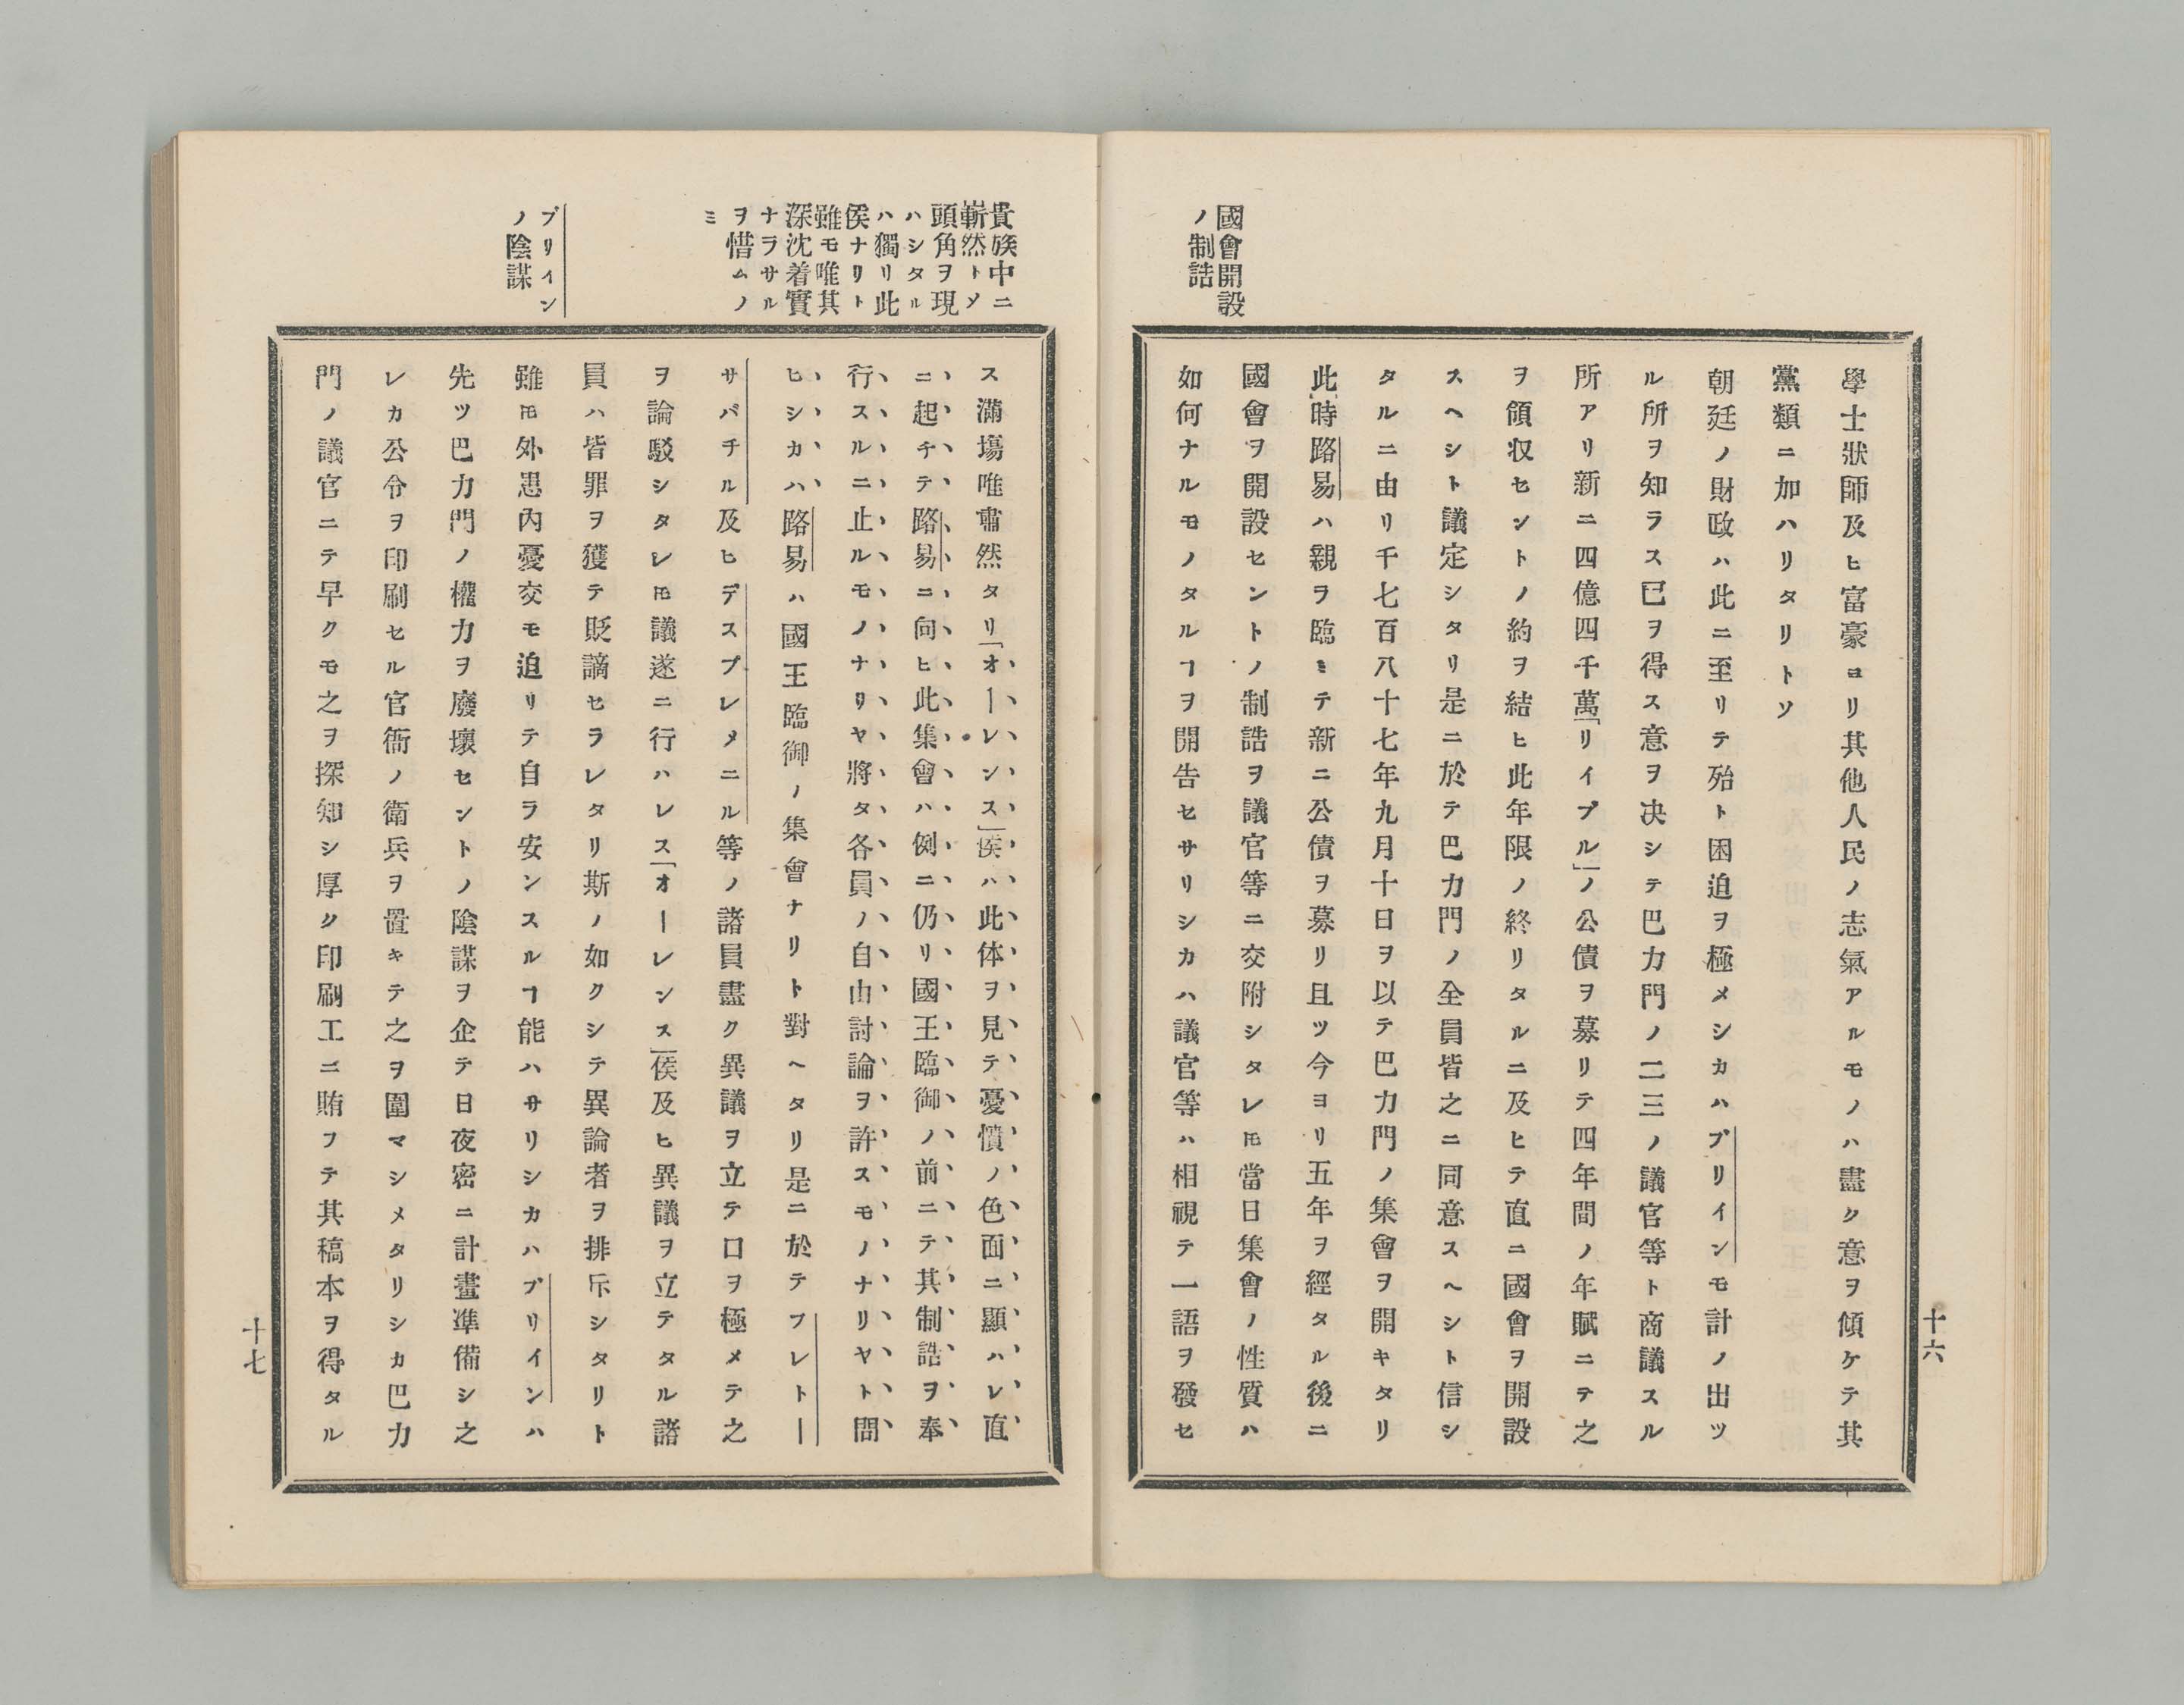 國會開設
ノ制誥
學士狀師及ヒ富豪ヨリ其他人民ノ志氣アルモノハ盡ク意ヲ傾ケテ其
黨類ニ加ハリタリトソ
朝廷ノ財政ハ此ニ至リテ殆ト困迫ヲ極メシカハブリインモ計ノ出ツ
ル所ヲ知ラス已ヲ得ス意ヲ决シテ巴力門ノ二三ノ議官等ト商議スル
所アリ新ニ四億四千萬「リイブル」ノ公債ヲ募リテ四年間ノ年賦ニテ之
ヲ領収セントノ約ヲ結ヒ此年限ノ終リタルニ及ヒテ直ニ國會ヲ開設
スヘシト議定シタリ是ニ於テ巴力門ノ全員皆之ニ同意スヘシト信シ
タルニ由リ千七百八十七年九月十日ヲ以テ巴力門ノ集會ヲ開キタリ
此時路易ハ親ヲ臨ミテ新ニ公債ヲ募リ且ツ今ヨリ五年ヲ經タル後ニ
國會ヲ開設セントノ制誥ヲ議官等ニ交附シタレ𪜈當日集會ノ性質ハ
如何ナルモノタルヿヲ開告セサリシカハ議官等ハ相視テ一語ヲ發セ
十六
貴族中ニ
嶄然トソ
頭角ヲ現
ハシタル
ハ獨リ此
侯ナリト
雖モ唯其
深沈着實
ナラサル
ヲ惜ムノ
ミ
ブリイン
ノ陰謀
ス滿塲唯肅然タリ「オーレンス」侯ハ此体ヲ見テ憂憤ノ色面ニ顯ハレ直
ニ起チテ路易ニ向ヒ此集會ハ例ニ仍リ國王臨御ノ前ニテ其制誥ヲ奉
行スルニ止ルモノナリヤ將タ各員ノ自由討論ヲ許スモノナリヤト問
ヒシカハ路易ハ國王臨御ノ集會ナリト對ヘタリ是ニ於テフレトー
サバチル及ヒデスプレメニル等ノ諸員盡ク異議ヲ立テ口ヲ極メテ之
ヲ論駁シタレ𪜈議遂ニ行ハレス「オーレンス」侯及ヒ異議ヲ立テタル諸
員ハ皆罪ヲ獲テ貶謫セラレタリ斯ノ如クシテ異論者ヲ排斥シタリト
雖𪜈外患內憂交モ迫リテ自ラ安ンスルヿ能ハサリシカハブリインハ
先ツ巴力門ノ權力ヲ廢壞セントノ陰謀ヲ企テ日夜密ニ計畫凖備シ之
レカ公令ヲ印刷セル官衙ノ衛兵ヲ置キテ之ヲ圍マシメタリシカ巴力
門ノ議官ニテ早クモ之ヲ探知シ厚ク印刷工ニ賄フテ其稿本ヲ得タル
十七